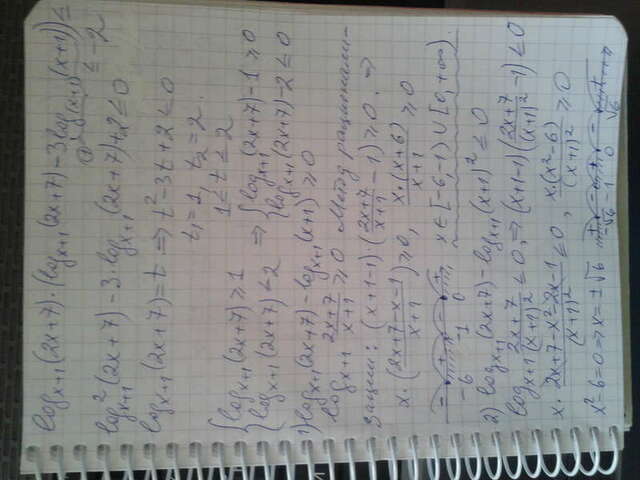 log_{x+1}(2x+7)·(log_{x+1}(2x+7)-3log_{(x+1)}(x+1)) ≤
≤ -2
log²_{x+1}(2x+7)-3·log_{x+1}(2x+7)+2≤0
log_{x+1}(2x+7)=t ⇒ t²-3t+2≤0
t₁=1, t₂=2.
1≤t≤2
{log_{x+1}(2x+7)≥1
{log_{x+1}(2x+7)≤2 ⇒ {log_{x+1}(2x+7)-1≥0
{log_{x+1}(2x+7)-2≤0
1) log_{x+1}(2x+7)-log_{x+1}(x+1)≥0
log_{x+1} (2x+7)/(x+1) ≥0 Метод рационали-
зации: (x+1-1)·((2x+7)/(x+1)-1)≥0. ⇒
x·((2x+7-x-1)/(x+1))≥0, x·(x+6)/(x+1)≥0
- + - +
-6 -1 0 x∈[-6,-1)∪[0,+∞)
2) log_{x+1}(2x+7)-log_{x+1}(x+1)²≤0
log_{x+1} (2x+7)/(x+1)²≤0, ⇒(x+1-1)((2x+7)/(x+1)²-1)≤0
x·(2x+7-x²-2x-1)/(x+1)²≤0, x·(x²-6)/(x+1)²≥0
x²-6=0⇒x=±√6
-√6 -1 0 √6